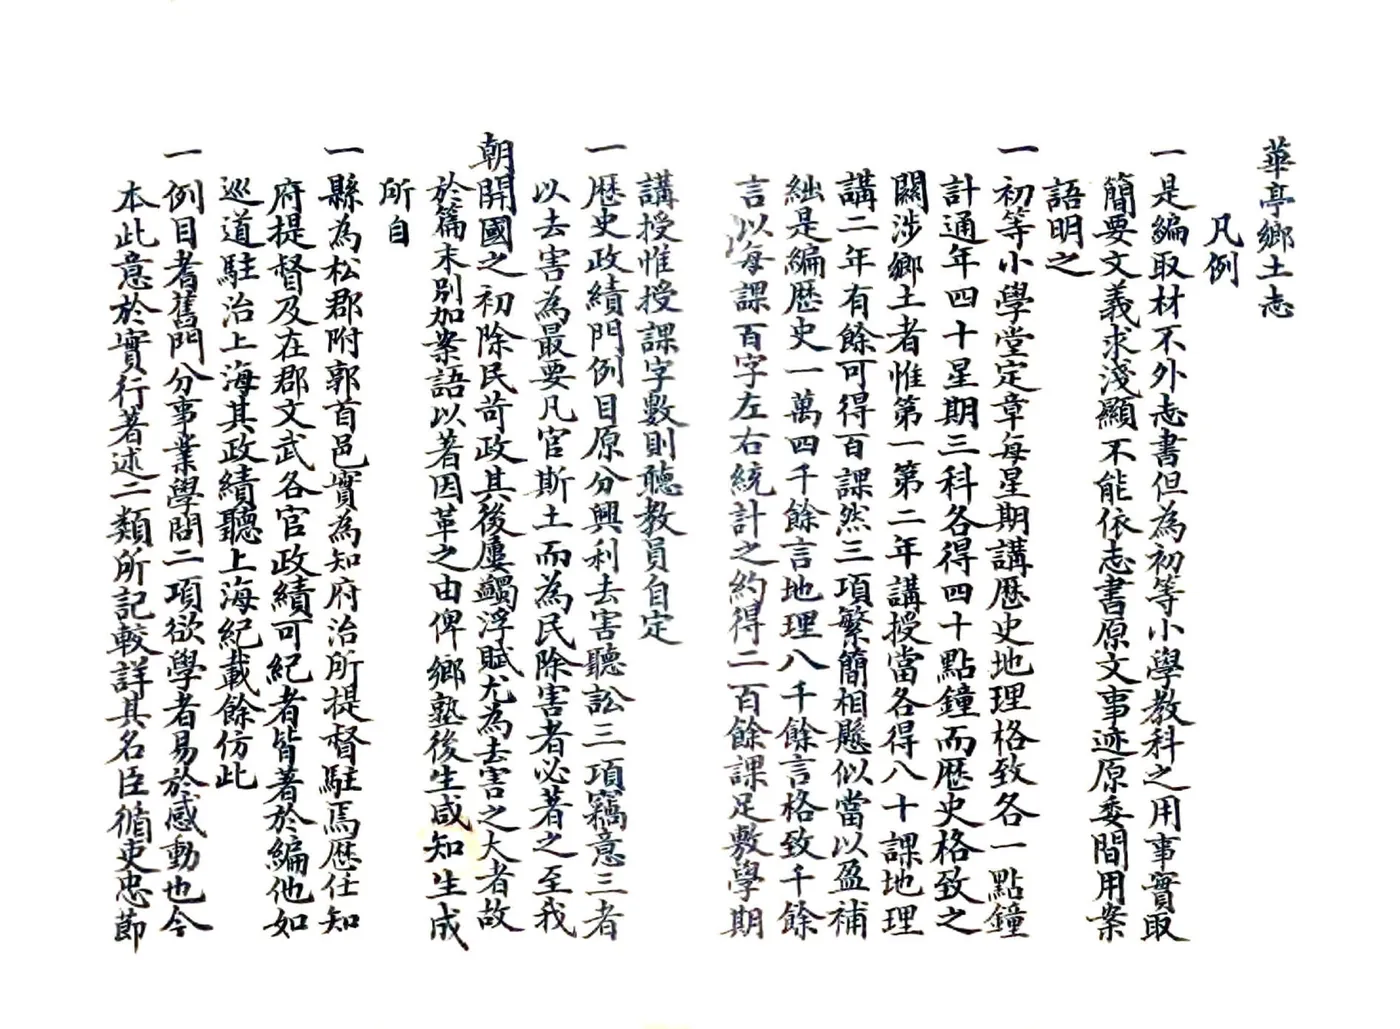 華亭鄉土志
凡例
一是編取材不外志書但為初等小學教科之用事實取
簡要文義求淺顯不能依志書原文事迹原委間用案
語明之
一初等小學堂定章每星期講歷史地理格致各一點鐘
計通年四十星期三科各得四十點鐘而歷史格致之
關涉鄉土者惟第一第二年講授當各得八十課地理
講二年有餘可得百課然三項繁簡相懸似當以盈補
絀是編歷史一萬四千餘言地理八千餘言格致千餘
言以每課百字左右統計之約得二百餘課足敷學期
講授惟授課字數則聽教員自定
一歷史政績門例目原分興利去害聽訟三項竊意三者
以去害為最要凡官斯土而為民除害者必著之至我
朝開國之初除民苛政其後屢蠲浮賦尤為去害之大者故
於篇末別加案語以著因革之由俾鄉塾後生咸知生成
所自
一縣為松郡附郭首邑實為知府治所提督駐焉歷任知
府提督及在郡文武各官政績可紀者皆著於編他如
巡道駐治上海其政績聽上海紀載餘仿此
一例目耆舊門分事業學問二項欲學者易於感動也今
本此意於實行著述二類所記較詳其名臣循吏忠節